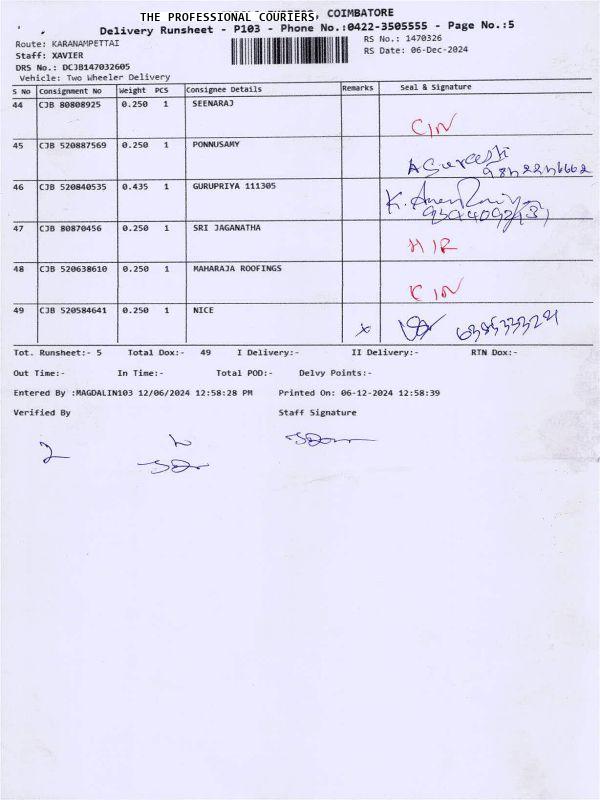 THE PROFESSIONAL COURIERS, COIMBATORE
Delivery Runsheet - P103 - Phone No.:0422-3505555 - Page No.:5
Route: KARANAMPETTAI
RS No.: 1470326
Staff: XAVIER
RS Date: 06-Dec-2024
DRS No.: DCJB147032605
Vehicle: Two Wheeler Delivery
S No Consignment No Weight PCS Consignee Details Remarks Seal & Signature
44 CJB 80808925 0.250 1 SEENARAJ
CIN
45 CJB 520887569 0.250 1 PONNUSAMY
A Suresh
46 CJB 520840535 0.435 1 GURUPRIYA 111305
47 CJB 80870456 0.250 1 SRI JAGANATHA
HIR
48 CJB 520638610 0.250 1 MAHARAJA ROOFINGS
CIN
49 CJB 520584641 0.250 1 NICE
x 6385333291
Tot. Runsheet:- 5 Total Dox:- 49 I Delivery:- II Delivery:- RTN Dox:-
Out Time:- In Time:- Total POD:- Delvy Points:-
Entered By :MAGDALIN103 12/06/2024 12:58:28 PM Printed On: 06-12-2024 12:58:39
Verified By Staff Signature